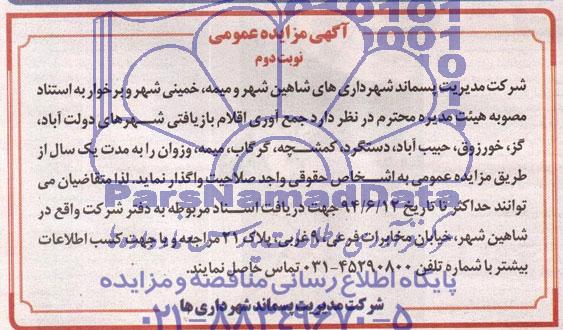 آگهی مزایده عمومی
نوبت دوم
شرکت مدیریت پسماند شهرداری های شاهین شهر و میمه، خمینی شهر و برخوار به استناد
مصوبه هیئت مدیره محترم در نظر دارد جمع آوری اقلام بازیافتی شهرهای دولت آباد،
گز، خورزوق، حبیب آباد، دستگرد، کمشچه، گرگاب، میمه، وزوان را به مدت یک سال از
طریق مزایده عمومی به اشخاص حقوقی واجد صلاحیت واگذار نماید. لذا متقاضیان می
توانند حداکثر تا تاریخ ۹۴/۶/۱۲ جهت دریافت اسناد مربوطه به دفتر شرکت واقع در
شاهین شهر، خیابان مخابرات فرعی ۹ غربی، پلاک ۲۱ مراجعه و یا جهت کسب اطلاعات
بیشتر با شماره تلفن ۴۵۲۹۰۸۰۰-۰۳۱ تماس حاصل نمایند.
شرکت مدیریت پسماند شهرداری ها
ParsNamadData
پایگاه اطلاع رسانی مناقصه و مزایده
۰۲۱-۸۸۳۴۹۶۷۰-۵